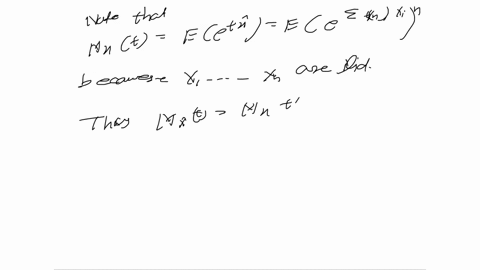 Note that
M_x (t) = E(e^{t x̂}) = E(e^{Σ (t/n) x_i})^n
because x_1 ---- x_n are iid.
Thus M_x̂ (t) = M_x t'